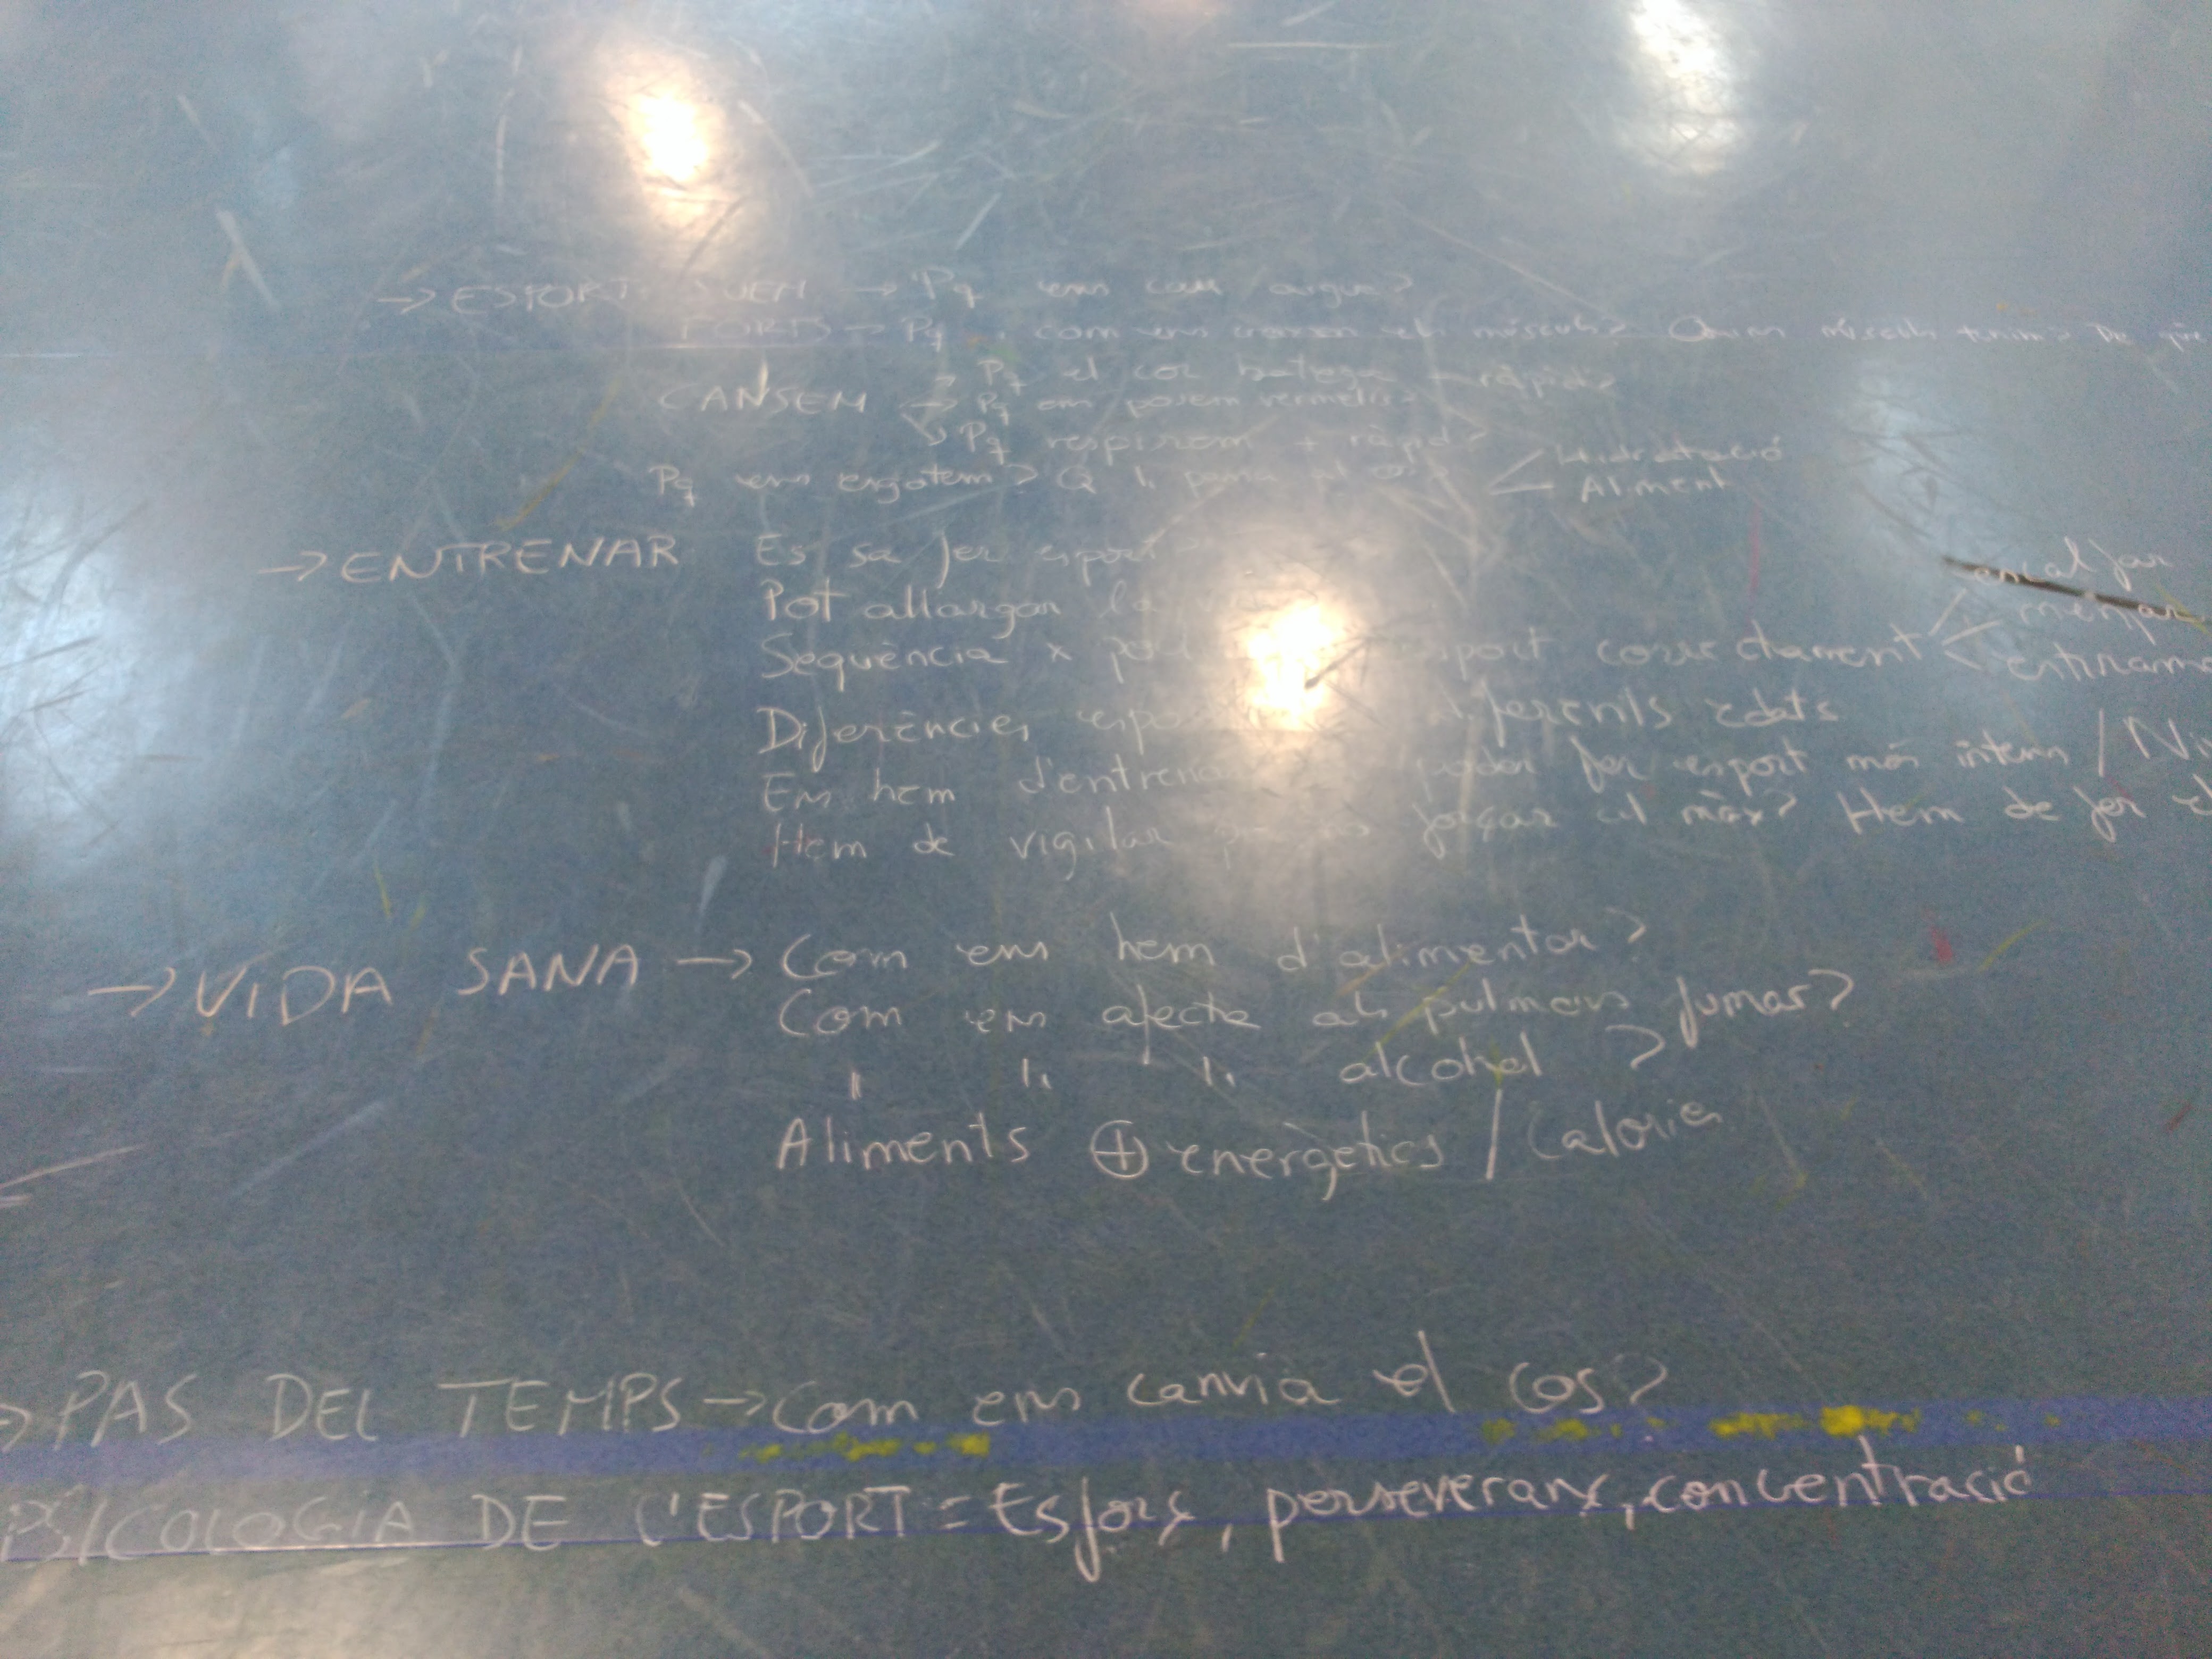 → ESPORT SUEM → Pq ens cau aigua?
FORÇA → Pq i com ens creixen els músculs? Quins músculs tenim? De què
→ Pq el cor batega + ràpid?
CANSEM → Pq ens posem vermells?
↘ Pq respirem + ràpid?
Pq ens esgotem? Q li passa al cos? Hidratació
Aliment
→ ENTRENAR Es sa fer esport
Pot allargar la
Seqüència x esport correctament escalfar
menjar
estirame
Diferències diferents edats
Ens hem d'entrenar poder fer esport més intens / Ni
Hem de vigilar forçar al màx? Hem de fer
→ VIDA SANA → Com ens hem d'alimentar?
Com ens afecta als pulmons fumar?
" " " alcohol ?
Aliments ⊕ energètics / Calories
→ PAS DEL TEMPS → Com ens canvia el cos?
PSICOLOGIA DE L'ESPORT = Esforç, perseveranç, concentració